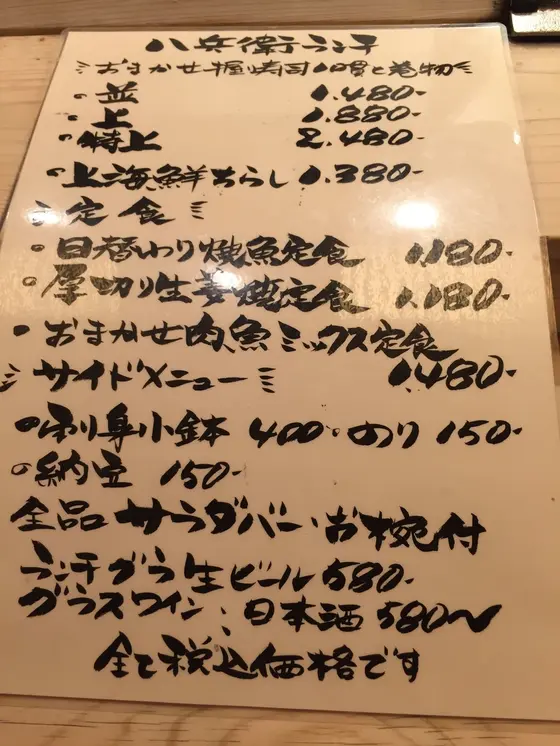 八兵衛ランチ
おまかせ握り寿司10貫と巻物
・並 1.480-
・上 1.880-
・特上 2.480-
・上海鮮ちらし 1.380-
定食
・日替わり焼魚定食 1.180-
・厚切り生姜焼定食 1.180-
・おまかせ肉魚ミックス定食
サイドメニュー 1.480-
・刺身小鉢 400・のり 150-
・納豆 150-
全品サラダバー・お椀付
ランチグラ生ビール580-
グラスワイン、日本酒580〜
全て税込価格です